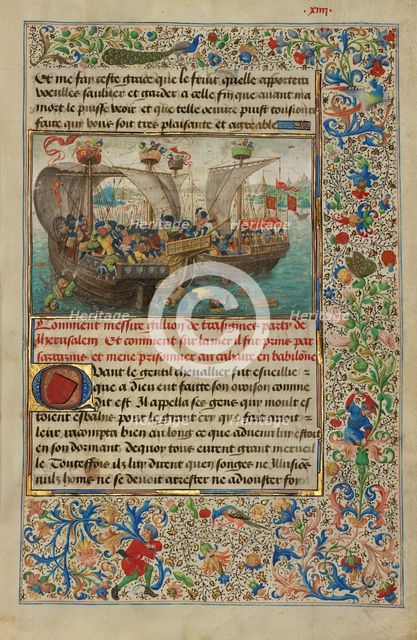 xiii
Et me fay ceste grace que le fruit quelle apportera
vueilles saulver et garder a celle fin que avant ma
mort le puisse veoir et que telle oeuvre puist tousiours
faire qui vous soit tres plaisante et agreable
Heritage Heritage Heritage
Heritage Heritage Heritage
Comment messire Gillion de trasignies party de
Iherusalem Et comment sur la mer il fut prins par
sarrazins et mene prisonnier au cahaire en babilone
Quant le gentil chevallier fut esveillie
que a Dieu eut faitte son oroison comme
dit est Il appella ses gens qui moult es
toient esbahis pour le grant cry que fait avoit
leur racompta bien au long ce que advenu luy estoit
en son dormant dequoy tous eurent grant merveil
le Touteffois ilz luy dirent quen songes ne Illusions
nulz homs ne se devoit arrester ne adiouster foy